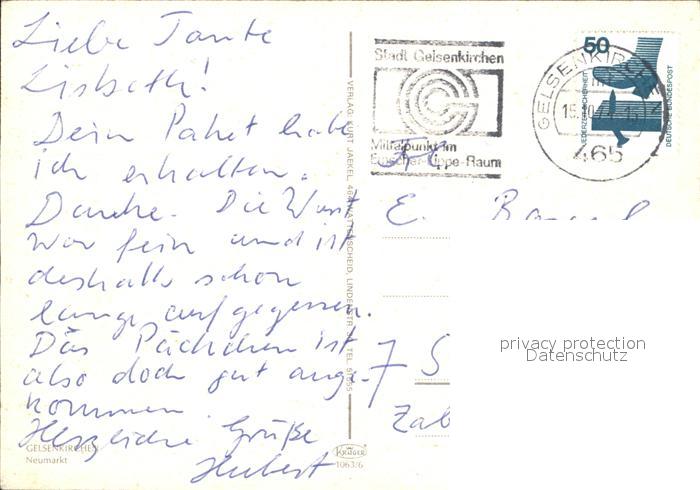 Liebe Tante
Lisbeth!
Dein Paket habe
ich erhalten.
Danke. Die Wurst
war fein und ist
deshalb schon
lange aufgegessen.
Das Päckchen ist
also doch gut ange-
kommen.
Herzliche Grüße
Hubert
GELSENKIRCHEN
Neumarkt
VERLAG KURT JAECKEL, 464 WATTENSCHEID, LINDENSTR.
KRÜGER
1063/6
Stadt Gelsenkirchen
Mittelpunkt im
Emscher-Lippe-Raum
GELSENKIRCHEN
465
50
JEDERZEIT SICHERHEIT
DEUTSCHE BUNDESPOST
E.
7 S
privacy protection
Datenschutz